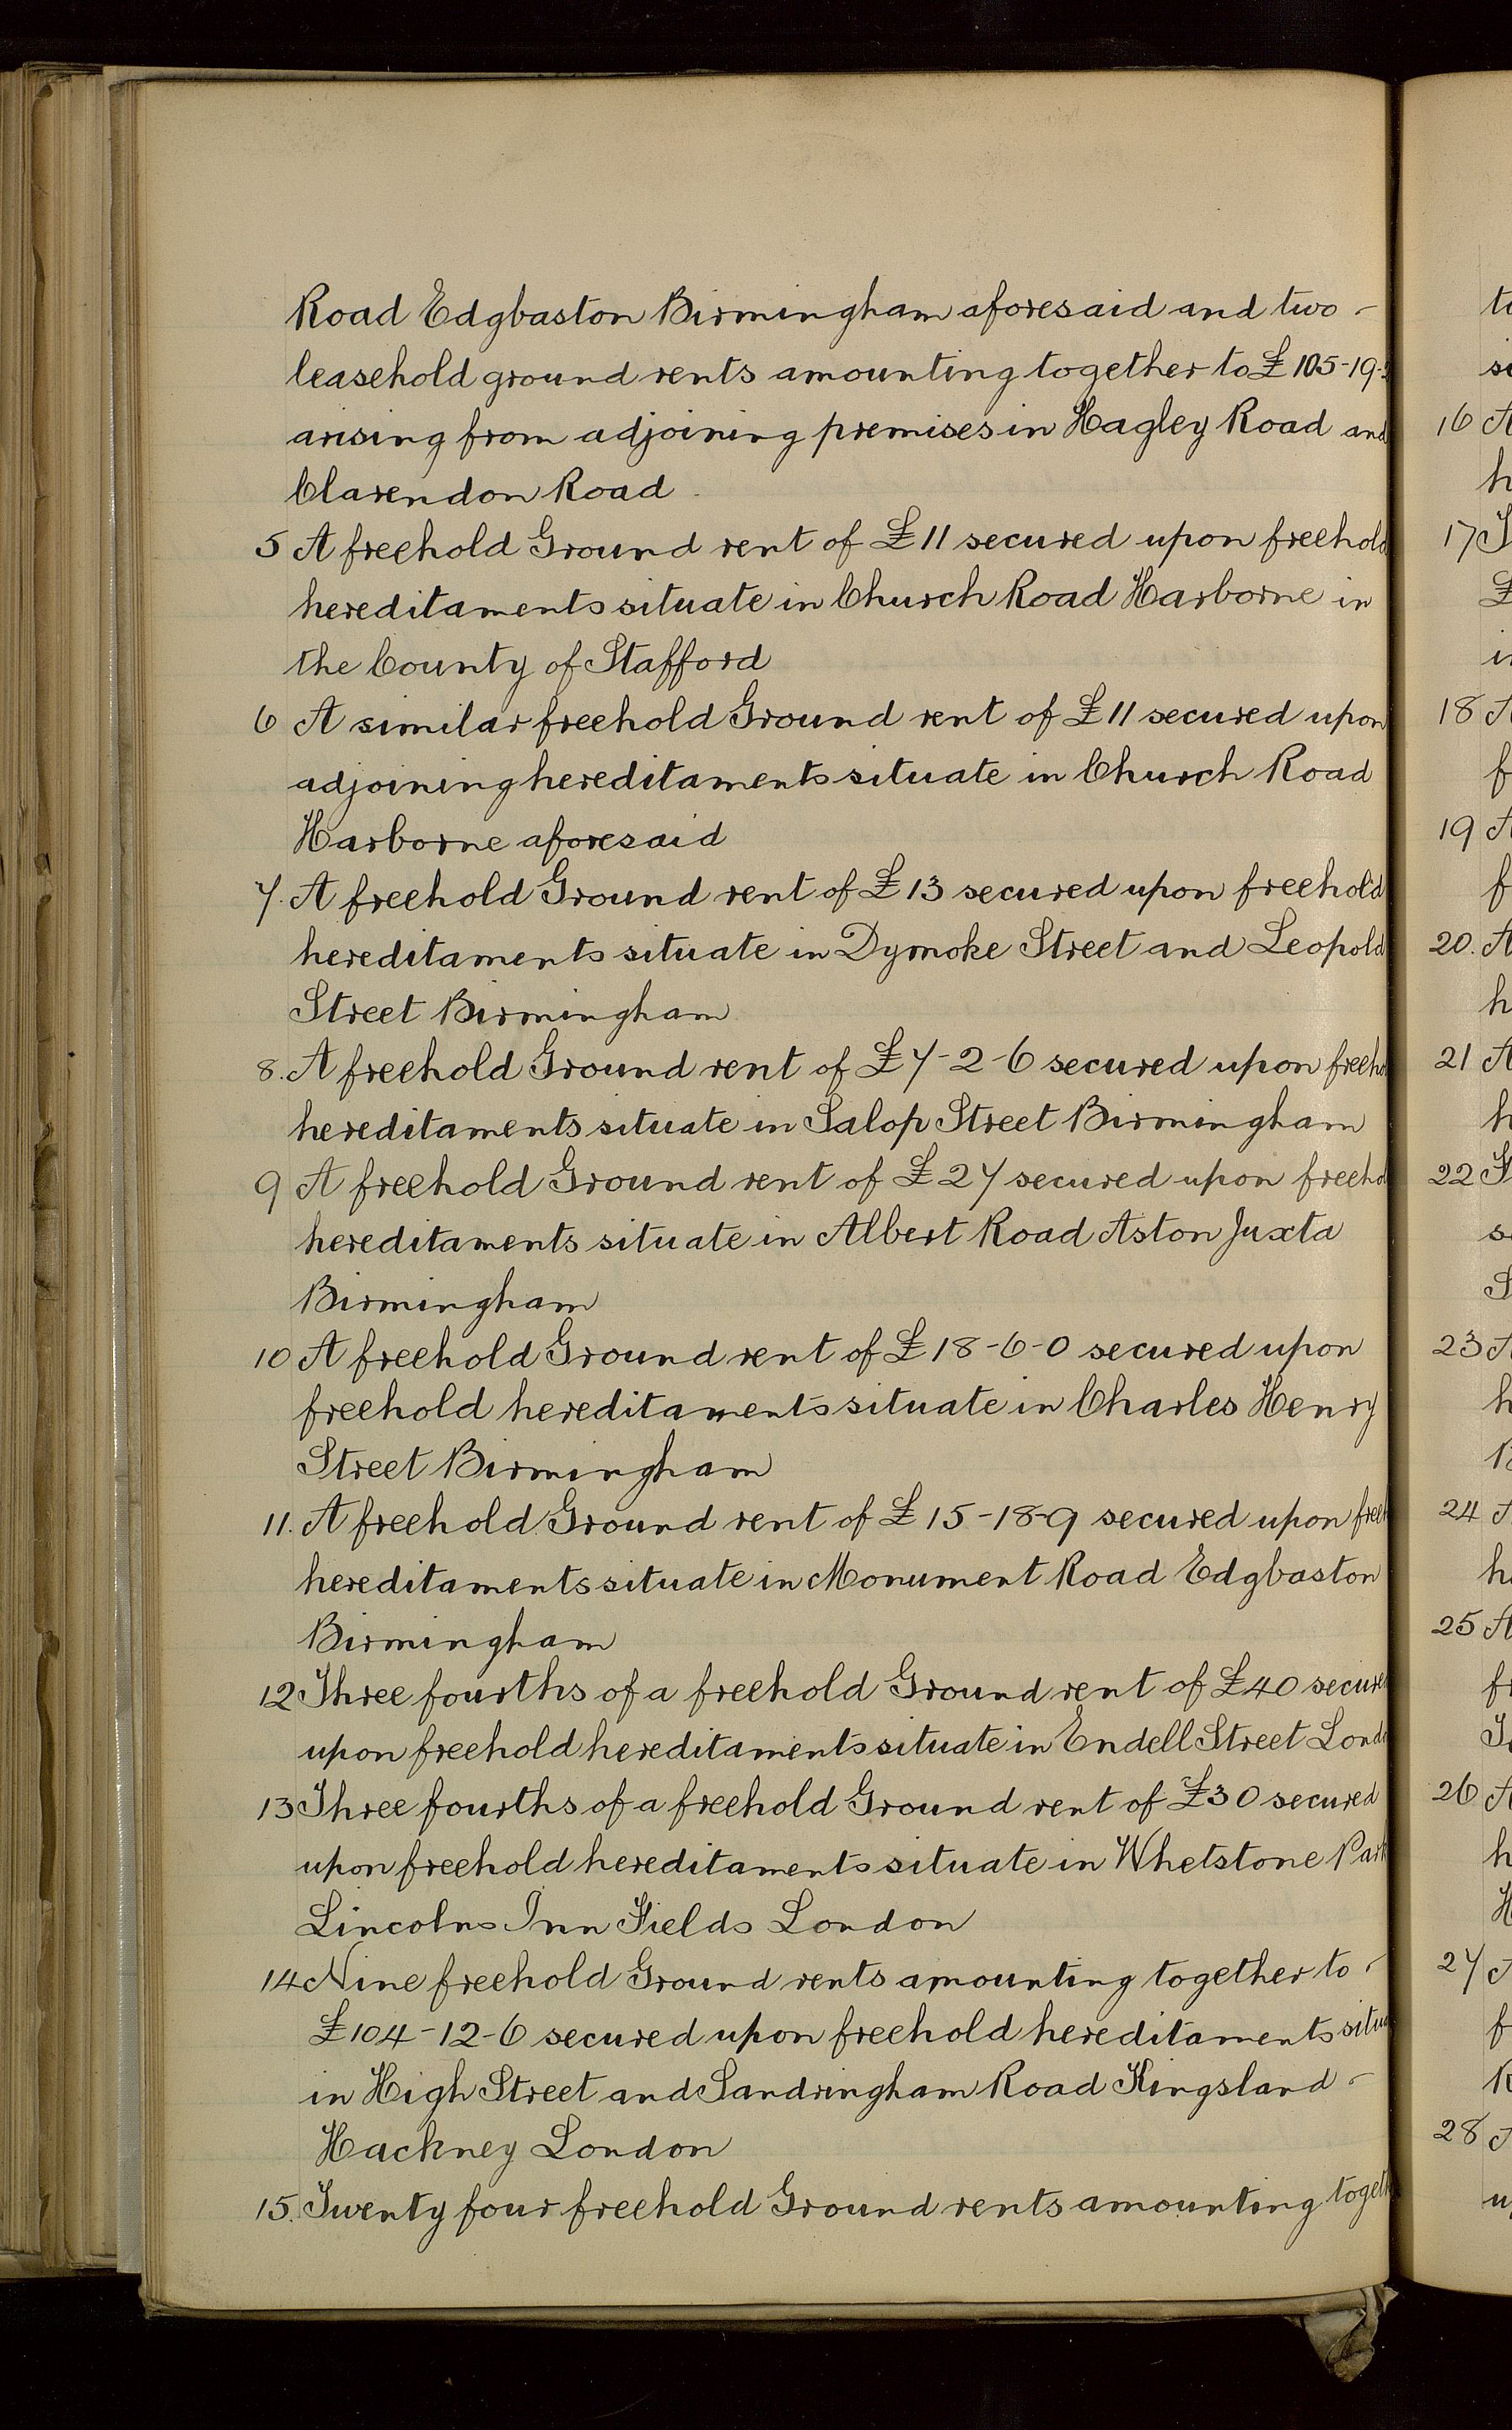 Road Edgbaston Birmingham aforesaid and two -
leasehold ground rents amounting together to £105-19-
arising from adjoining premises in Hagley Road and
Clarendon Road
5 A freehold Ground rent of £11 secured upon freehold
hereditaments situate in Church Road Harborne in
the County of Stafford
6 A similar freehold Ground rent of £11 secured upon
adjoining hereditaments situate in Church Road
Harborne aforesaid
7. A freehold Ground rent of £13 secured upon freehold
hereditaments situate in Dymoke Street and Leopold
Street Birmingham
8. A freehold Ground rent of £7-2-6 secured upon freeho
hereditaments situate in Salop Street Birmingham
9 A freehold Ground rent of £27 secured upon freehol
hereditaments situate in Albert Road Aston Juxta
Birmingham
10 A freehold Ground rent of £18-6-0 secured upon
freehold hereditaments situate in Charles Henry
Street Birmingham
11. A freehold Ground rent of £15-18-9 secured upon freeh
hereditaments situate in Monument Road Edgbaston
Birmingham
12 Three fourths of a freehold Ground rent of £40 secured
upon freehold hereditaments situate in Endell Street Londo
13 Three fourths of a freehold Ground rent of £30 secured
upon freehold hereditaments situate in Whetstone Park
Lincolns Inn Fields London
14 Nine freehold Ground rents amounting together to -
£104-12-6 secured upon freehold hereditaments situa
in High Street and Sandringham Road Kingsland -
Hackney London
15. Twenty four freehold Ground rents amounting togeth
16 A
h
17
£
18
f
19 A
f
20. A
h
21 A
h
22
23
h
24
h
25 A
26 A
h
H
27
f
R
28